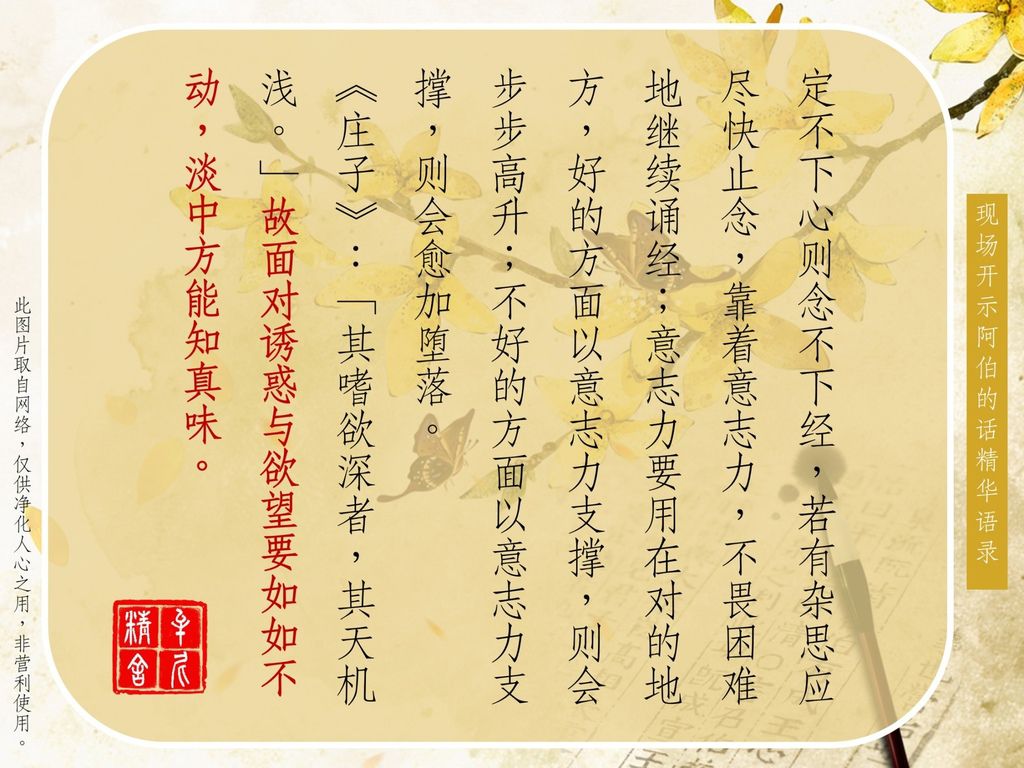 现场开示阿伯的话精华语录
定不下心则念不下经，若有杂思应
尽快止念，靠着意志力，不畏困难
地继续诵经；意志力要用在对的地
方，好的方面以意志力支撑，则会
步步高升；不好的方面以意志力支
撑，则会愈加堕落。
《庄子》：「其嗜欲深者，其天机
浅。」故面对诱惑与欲望要如如不
动，淡中方能知真味。
精舍
此图片取自网络，仅供净化人心之用，非营利使用。